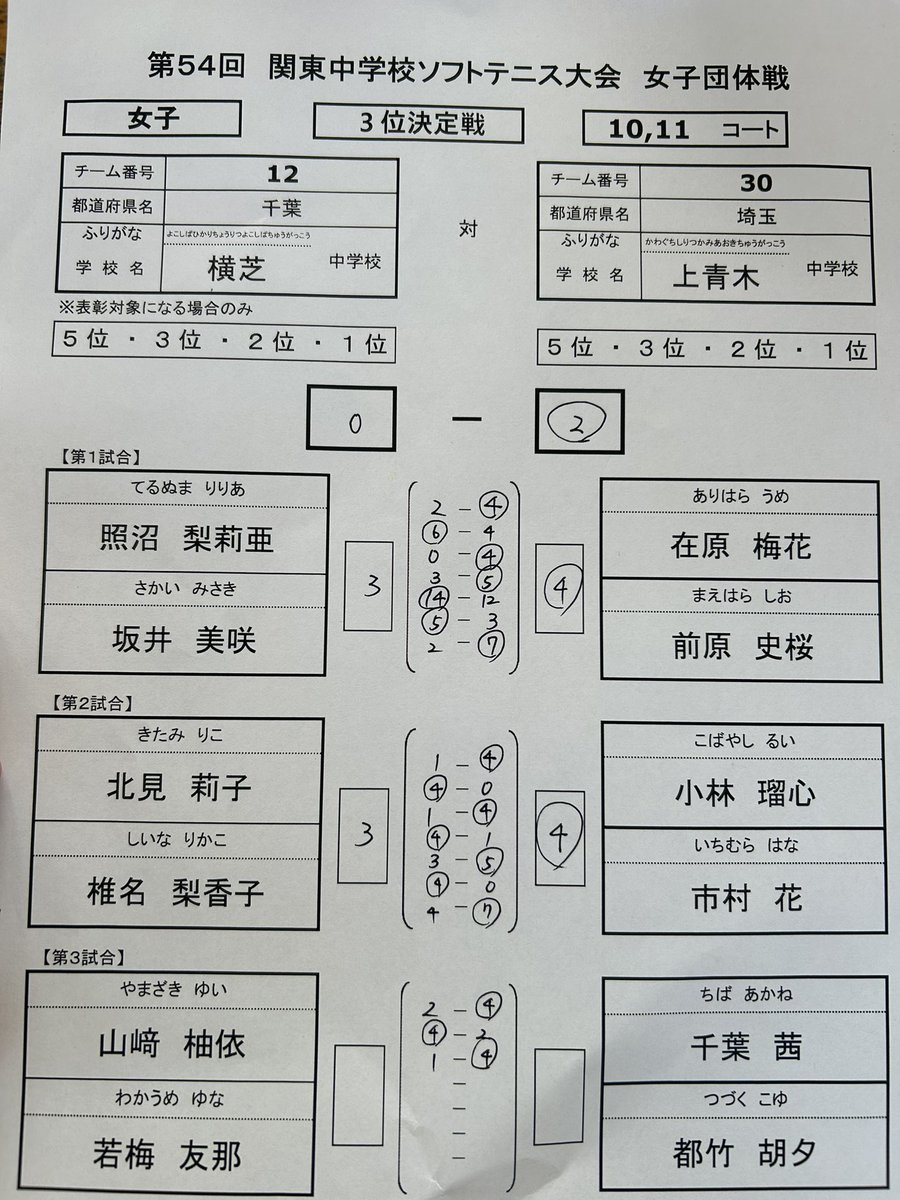 第54回 関東中学校ソフトテニス大会 女子団体戦
女子 3位決定戦 10,11 コート
チーム番号 12
都道府県名 千葉
ふりがな よこしばひかりちょうりつよこしばちゅうがっこう
学校名 横芝 中学校
対
チーム番号 30
都道府県名 埼玉
ふりがな かわぐちしりつかみあおきちゅうがっこう
学校名 上青木 中学校
※表彰対象になる場合のみ
5位・3位・2位・1位
5位・3位・2位・1位
0 ー ②
【第1試合】
てるぬま りりあ
照沼 梨莉亜
さかい みさき
坂井 美咲
3
2 - ④
⑥ - 4
0 - ④
3 - ⑤
⑭ - 12
⑤ - 3
2 - ⑦
④
ありはら うめ
在原 梅花
まえはら しお
前原 史桜
【第2試合】
きたみ りこ
北見 莉子
しいな りかこ
椎名 梨香子
3
1 - ④
④ - 0
1 - ④
④ - 1
3 - ⑤
④ - 0
4 - ⑦
④
こばやし るい
小林 瑠心
いちむら はな
市村 花
【第3試合】
やまざき ゆい
山﨑 柚依
わかうめ ゆな
若梅 友那
2 - ④
④ - 2
1 - ④
-
-
-
-
ちば あかね
千葉 茜
つづく こゆ
都竹 胡夕